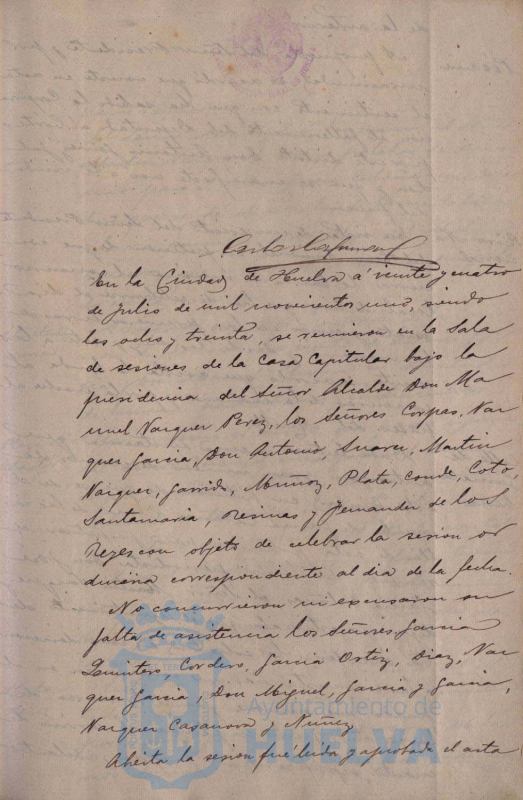 En la Ciudad de Huelva á veinte y cuatro
de Julio de mil novecientos uno, siendo
las ocho y treinta, se reunieron en la Sala
de sesiones de la Casa Capitular bajo la
presidencia del Señor Alcalde Don Ma
nuel Vazquez Perez, los Señores Corpas, Vaz
quez Garcia, Don Antonio, Suarez, Martin
Vazquez, Garrido, Muñoz, Plata, Conde, Coto,
Santamaria, Resinas y Fernandez de los
Reyes con objeto de celebrar la sesion or
dinaria correspondiente al dia de la fecha.
No concurrieron ni excusaron su
falta de asistencia los Señores Garcia
Quintero, Cordero, Garcia Ortiz, Diaz, Vaz
quez Garcia, Don Miguel, Garcia y Garcia,
Vazquez Casanova y Nuñez
Ayuntamiento de
HUELVA
Abierta la sesion fué leida y aprobada el acta